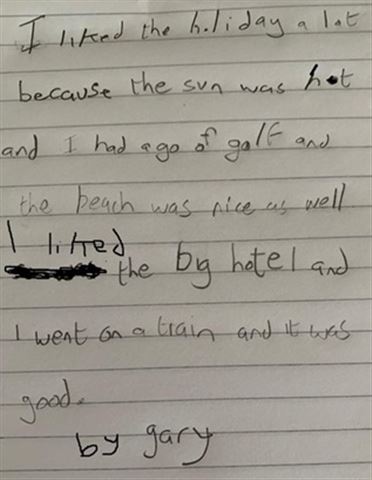 I liked the holiday a lot
because the sun was hot
and I had a go of golf and
the beach was nice as well
I liked
the big hotel and
I went on a train and it was
good.
by gary